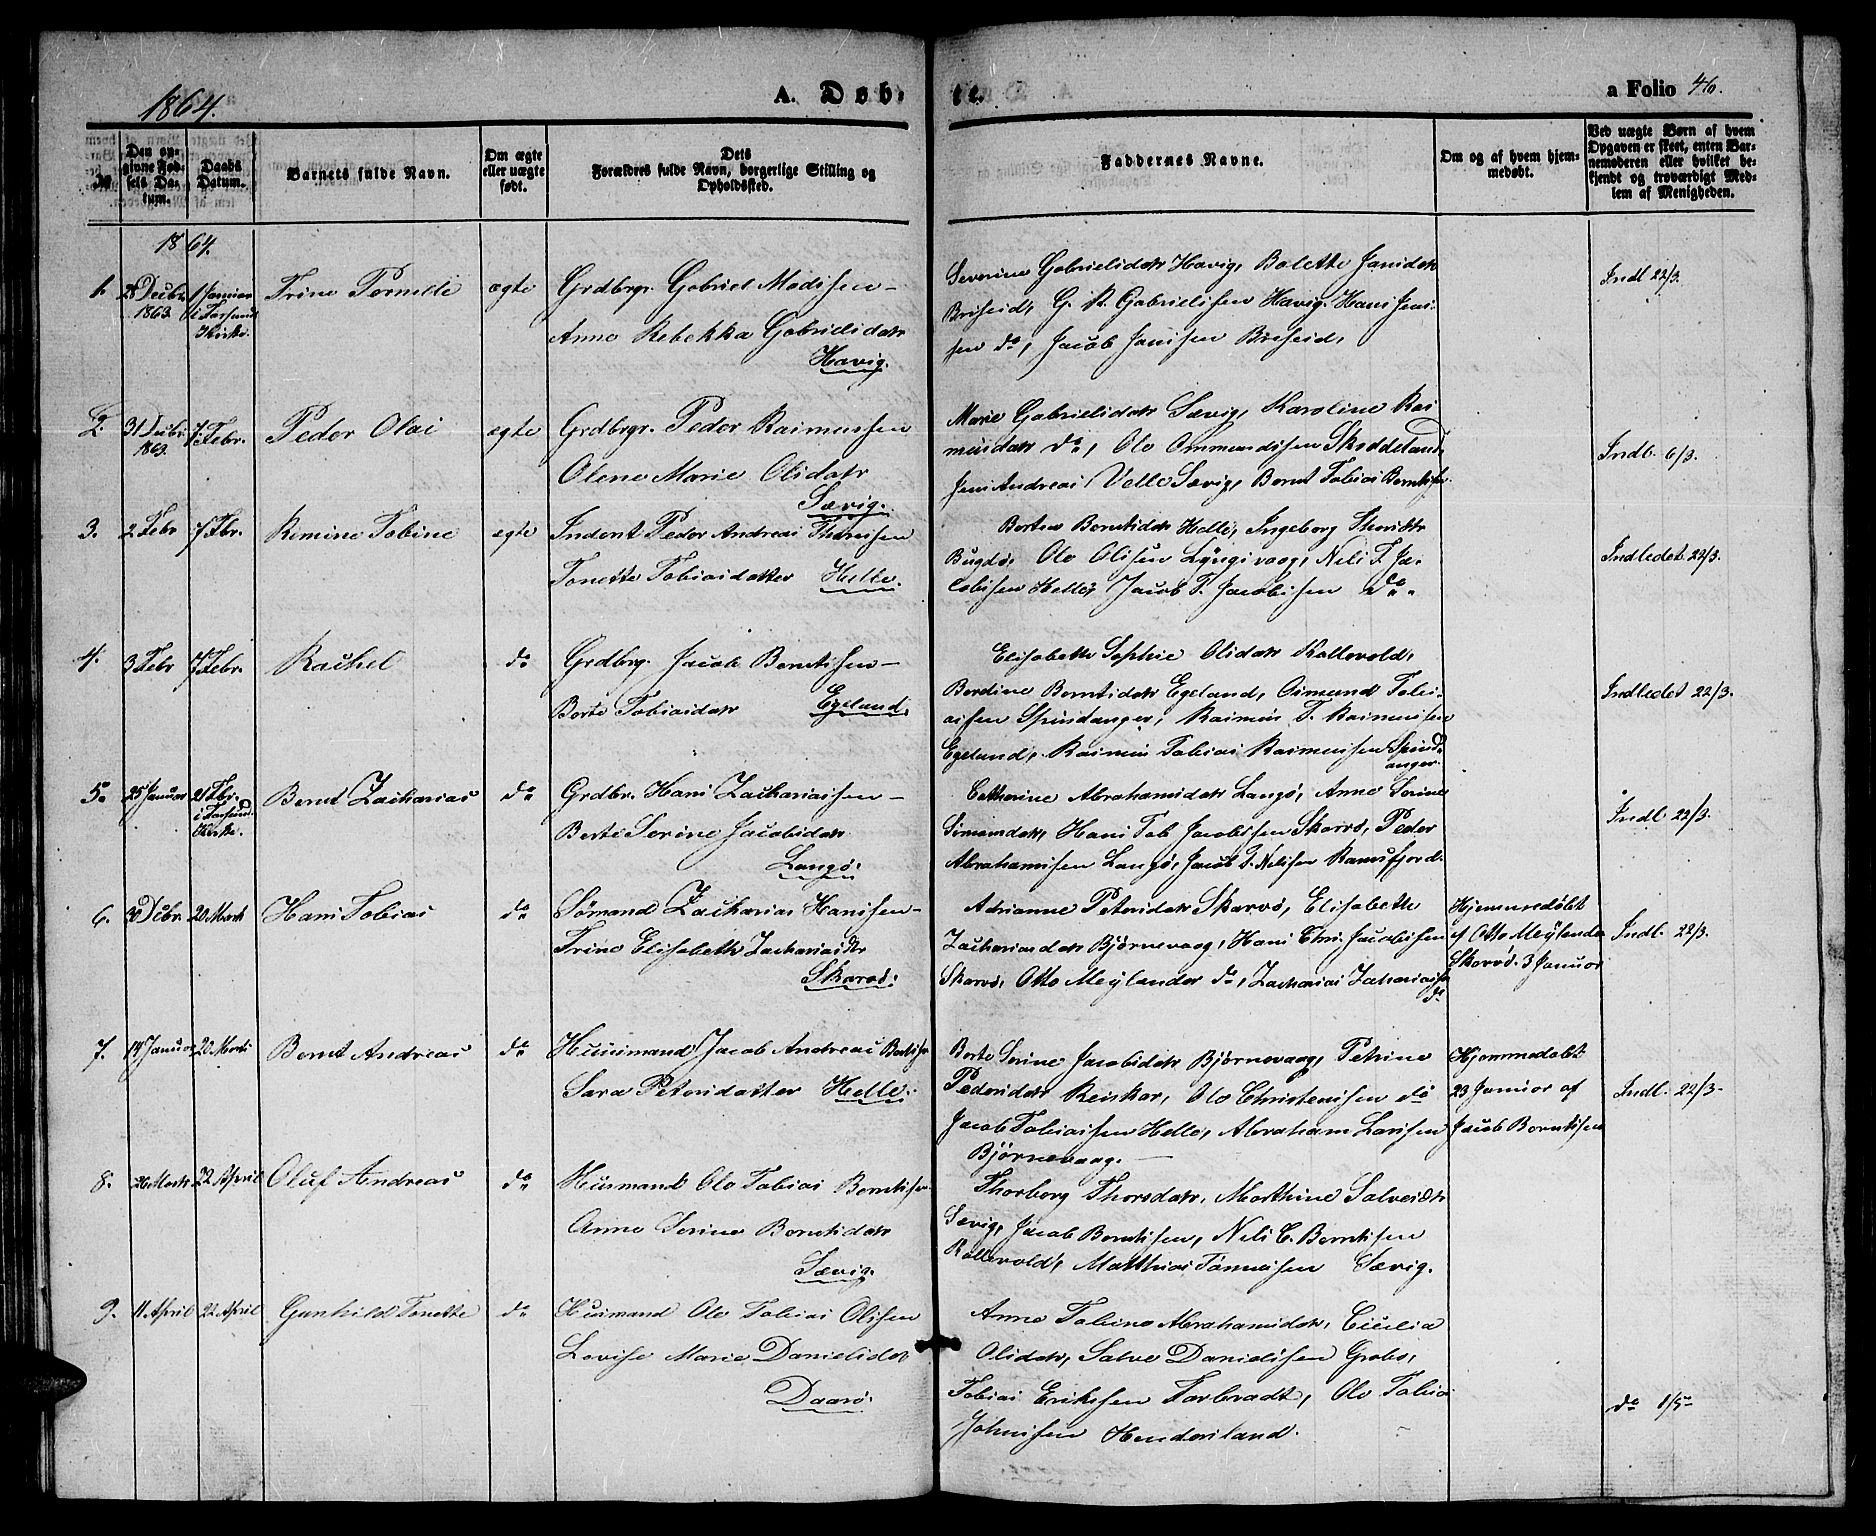 1864.
A. Døb-
te.
a Folio 46.
No
Den op-
givne Fød-
sels Da-
tum.
Daabs
Datum.
Barnets fulde Navn.
Om ægte
eller uægte
født.
Dets
Forældres fulde Navn, borgerlige Stilling og
Opholdssted.
Faddernes Navne.
Om og af hvem hjem-
medøbt.
Ved uægte Børn af hvem
Opgaven er skeet, enten Bar-
nemoderen eller hvilket be-
kjendt og troværdigt Med-
lem af Menigheden.
1864.
1.
28 Decbr
1863.
1 Januar
i Farsund
Kirke.
Trine
ægte
Grdbrgr. Gabriel Madssen –
Anne Rebekka Gabrielsdatr
Havig.
Severine Gabrielsdatr Havig, Bolette Jansdatr
Briseid, G. R. Gabrielssen Havig, Hans Jens-
sen do, Jacob Janssen Briseid,
Indl 22/3.
2.
31 Decbr
1863.
7 Febr.
Peder Olai
egte
Grdbrgr. Peder Rasmussen
Olene Marie Olsdatr
Sævig.
Marie Gabrielsdatr Sævig, Karoline Ras
musdatr do, Ole Ommundssen Skoddeland,
Jens Andreas Velle Sævig, Bernt Tobias Berntssen.
Indb. 6/3.
3.
2 Febr
7 Febr.
Remine Tobine
egte
Inderst Peder Andreas Thorssen
Tonette Tobiasdatter Helle.
Berte Berntsdatr Helle, Ingeborg
Bugdø, Ole Olssen Lyngsvaag, Nils T. Ja-
cobssen Helle, Jacob T. Jacobssen do.
Indledet 22/3.
4.
3 Febr
7 Febr.
Rachel
do
Grdbrg. Jacob Berntssen –
Berte Tobiasdatr Egeland.
Elisabeth Sophie Olsdatr Kollevold,
Berdine Berntsdatr Egeland, Osmund Tobi-
assen Spindanger, Rasmus T. Rasmussen
Egeland, Rasmus Tobias Rasmussen Spind-
anger.
Indledet 22/3.
5.
25 Januar
21 Febr.
i Farsund
Kirke.
Bernt Zacharias
do
Grdbr. Hans Zachariassen –
Berte Serine Jacobsdatr
Langø.
Cathrine Abrahamsdatr Langø, Anne Serine
Simonsdatr, Hans Tob Jacobssen Skarvø, Peder
Abrahamssen Langø, Jacob T. Nilssen Ramsfjord.
Indl. 22/3.
6.
Decbr
20 Marts
Hans Tobias
do
Sømand Zacharias Hanssen –
Trine Elisabeth Zachariasdtr
Skarvø.
Adrianne Petersdatr Skarvø, Elisabette
Zachariasdatr Bjørnevaag, Hans Chr. Jacobssen
Skarvø, Otto Meylander do, Zacharias Zachariassen
do
Hjemmedøbt
af Otto Meylander
Skarvø. 3 Januar
Indl. 22/3.
7.
14 Januar
20 Marts
Bernt Andreas
do
Huusmand Jacob Andreas
Sara Petersdatter Helle.
Berte Serine Jacobsdatr Bjørnevaag, Petrine
Pedersdatr Reiskar, Ole Christenssen do
Jacob Tobiassen Helle, Abraham Larssen
Bjørnevaag. –
Hjemmedøbt
23 Januar af
Jacob Berntssen
Indl. 22/3.
8.
26 Marts
22 April
Oluf Andreas
do
Husmand Ole Tobias Berntssen
Anne Serine Berntsdatr
Sævig.
Thorborg Thorsdatr, Marthine Salvesdtr
Sævig, Jacob Berntssen, Nils C. Berntssen
Kollevold, Matthias Tønnessen Sævig.
9.
11 April
22 April
Gunhild Tonette
do
Husmand Ole Tobias Olssen
Lovise Marie Danielsdatr
Daarø.
Anne Tobine Abrahamsdatr, Cicilia
Olsdatr, Salve Danielssen
Tobias Erikssen Farbradt, Ole Tobias
Johnssen Hundersland.
do 1/5